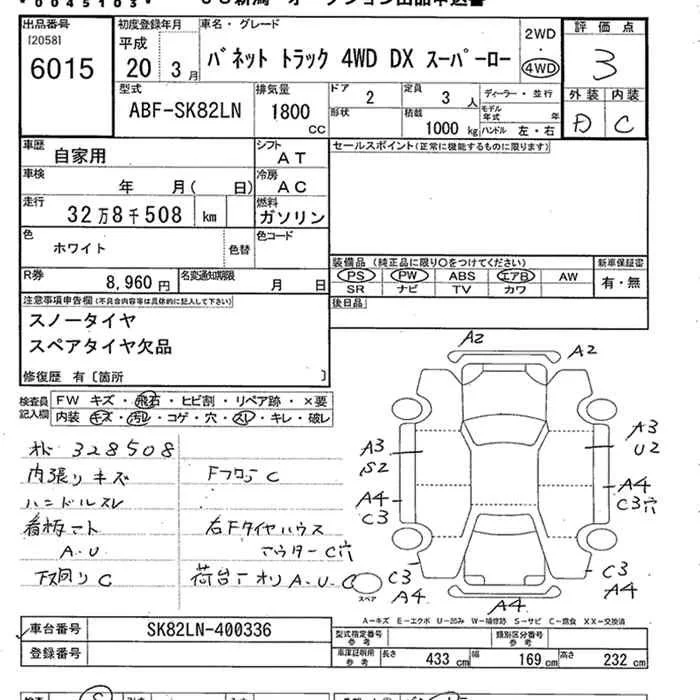 *0045103*
出品番号 初度登録年月 車名・グレード 2WD・4WD 評価点
[2058]
6015
平成 20 3月
バネット トラック 4WD DX スーパーロー
3
型式 ABF-SK82LN
排気量 1800 cc
ドア 2
定員 3 人
ディーラー・並行
外装 内装
形状
積載 1000 kg
モデル年式 年
ハンドル 左・右
D C
車歴 自家用
シフト AT
セールスポイント(正常に機能するものに限ります)
車検 年 月( 日)
冷房 AC
走行 32万8千508 km
燃料 ガソリン
色 ホワイト 色替
色コード
装備品 (純正品に限り○をつけてください)
新車保証書
PS PW ABS エアB AW
有・無
SR ナビ TV カワ
R券 8,960円
名変通知期限 月 日
後日品
注意事項申告欄(不具合内容等は具体的に記入して下さい)
スノータイヤ
スペアタイヤ欠品
修復歴 有〔箇所 〕
検査員記入欄
FW キズ・飛石・ヒビ割・リペア跡・×要
内装・キズ・汚レ・コゲ・穴・スレ・キレ・破レ
オド 328508
内張りキズ
Fフロア C
ハンドルスレ
看板マト
右Fタイヤハウス
A.U
アウターC穴
下回りC
荷台アオリ A.U.C
A2
A2
A3
S2
A3
U2
A4
C3
A4
C3穴
C3
A4
C3
A4
A4
スペア
A-キズ E-エクボ U-凹み W-補修跡 S-サビ C-腐食 XX-交換済
車台番号 SK82LN-400336
型式指定番号 参考
類別区分番号 参考
登録番号
車庫証明用 参考 長さ 433 cm 幅 169 cm 高さ 232 cm